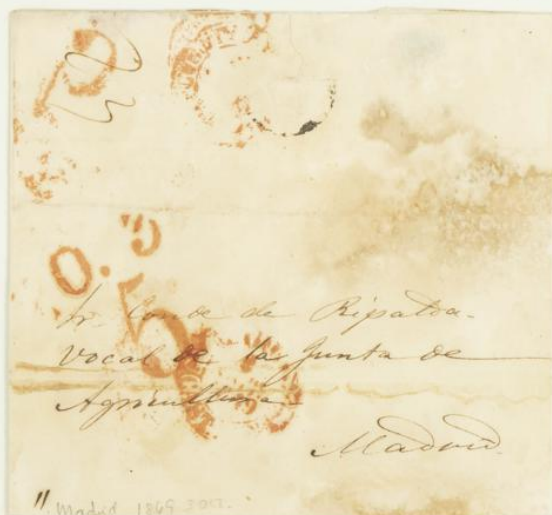 Sr. Conde de Ripalda
Vocal de la Junta de
Agricultura
Madrid
Madrid 1869